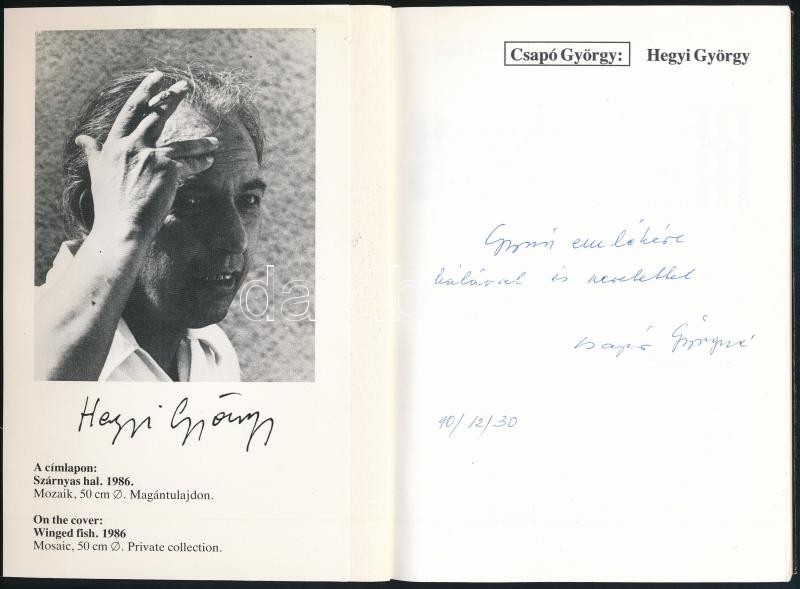 Hegyi György
A címlapon:
Szárnyas hal. 1986.
Mozaik, 50 cm ∅. Magántulajdon.
On the cover:
Winged fish. 1986
Mosaic, 50 cm ∅. Private collection.
Csapó György: Hegyi György
emlékére
hálával és szeretettel
Csapó Györgyné
90/12/30